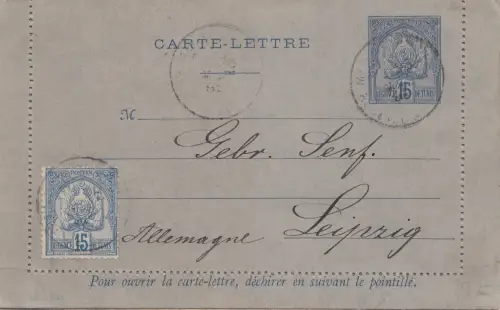 CARTE-LETTRE
15
M
Gebr. Senf.
Leipzig
Allemagne
15
Pour ouvrir la carte-lettre, déchirer en suivant le pointillé.